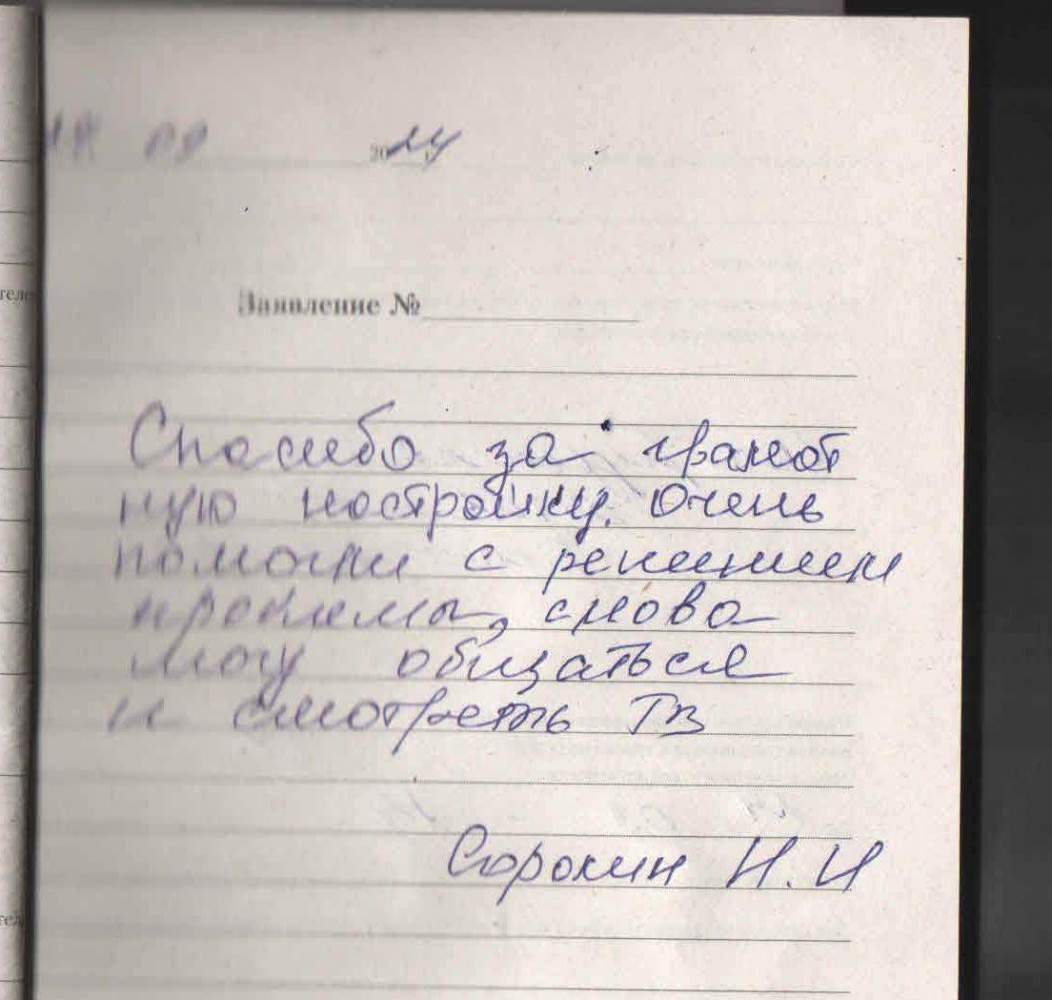 18 09 2014
Заявление №
Спасибо за грамот
ную настройку. Очень
помогли с решением
проблемы, снова
могу общаться
и смотреть ТВ
Сорокин Н.И